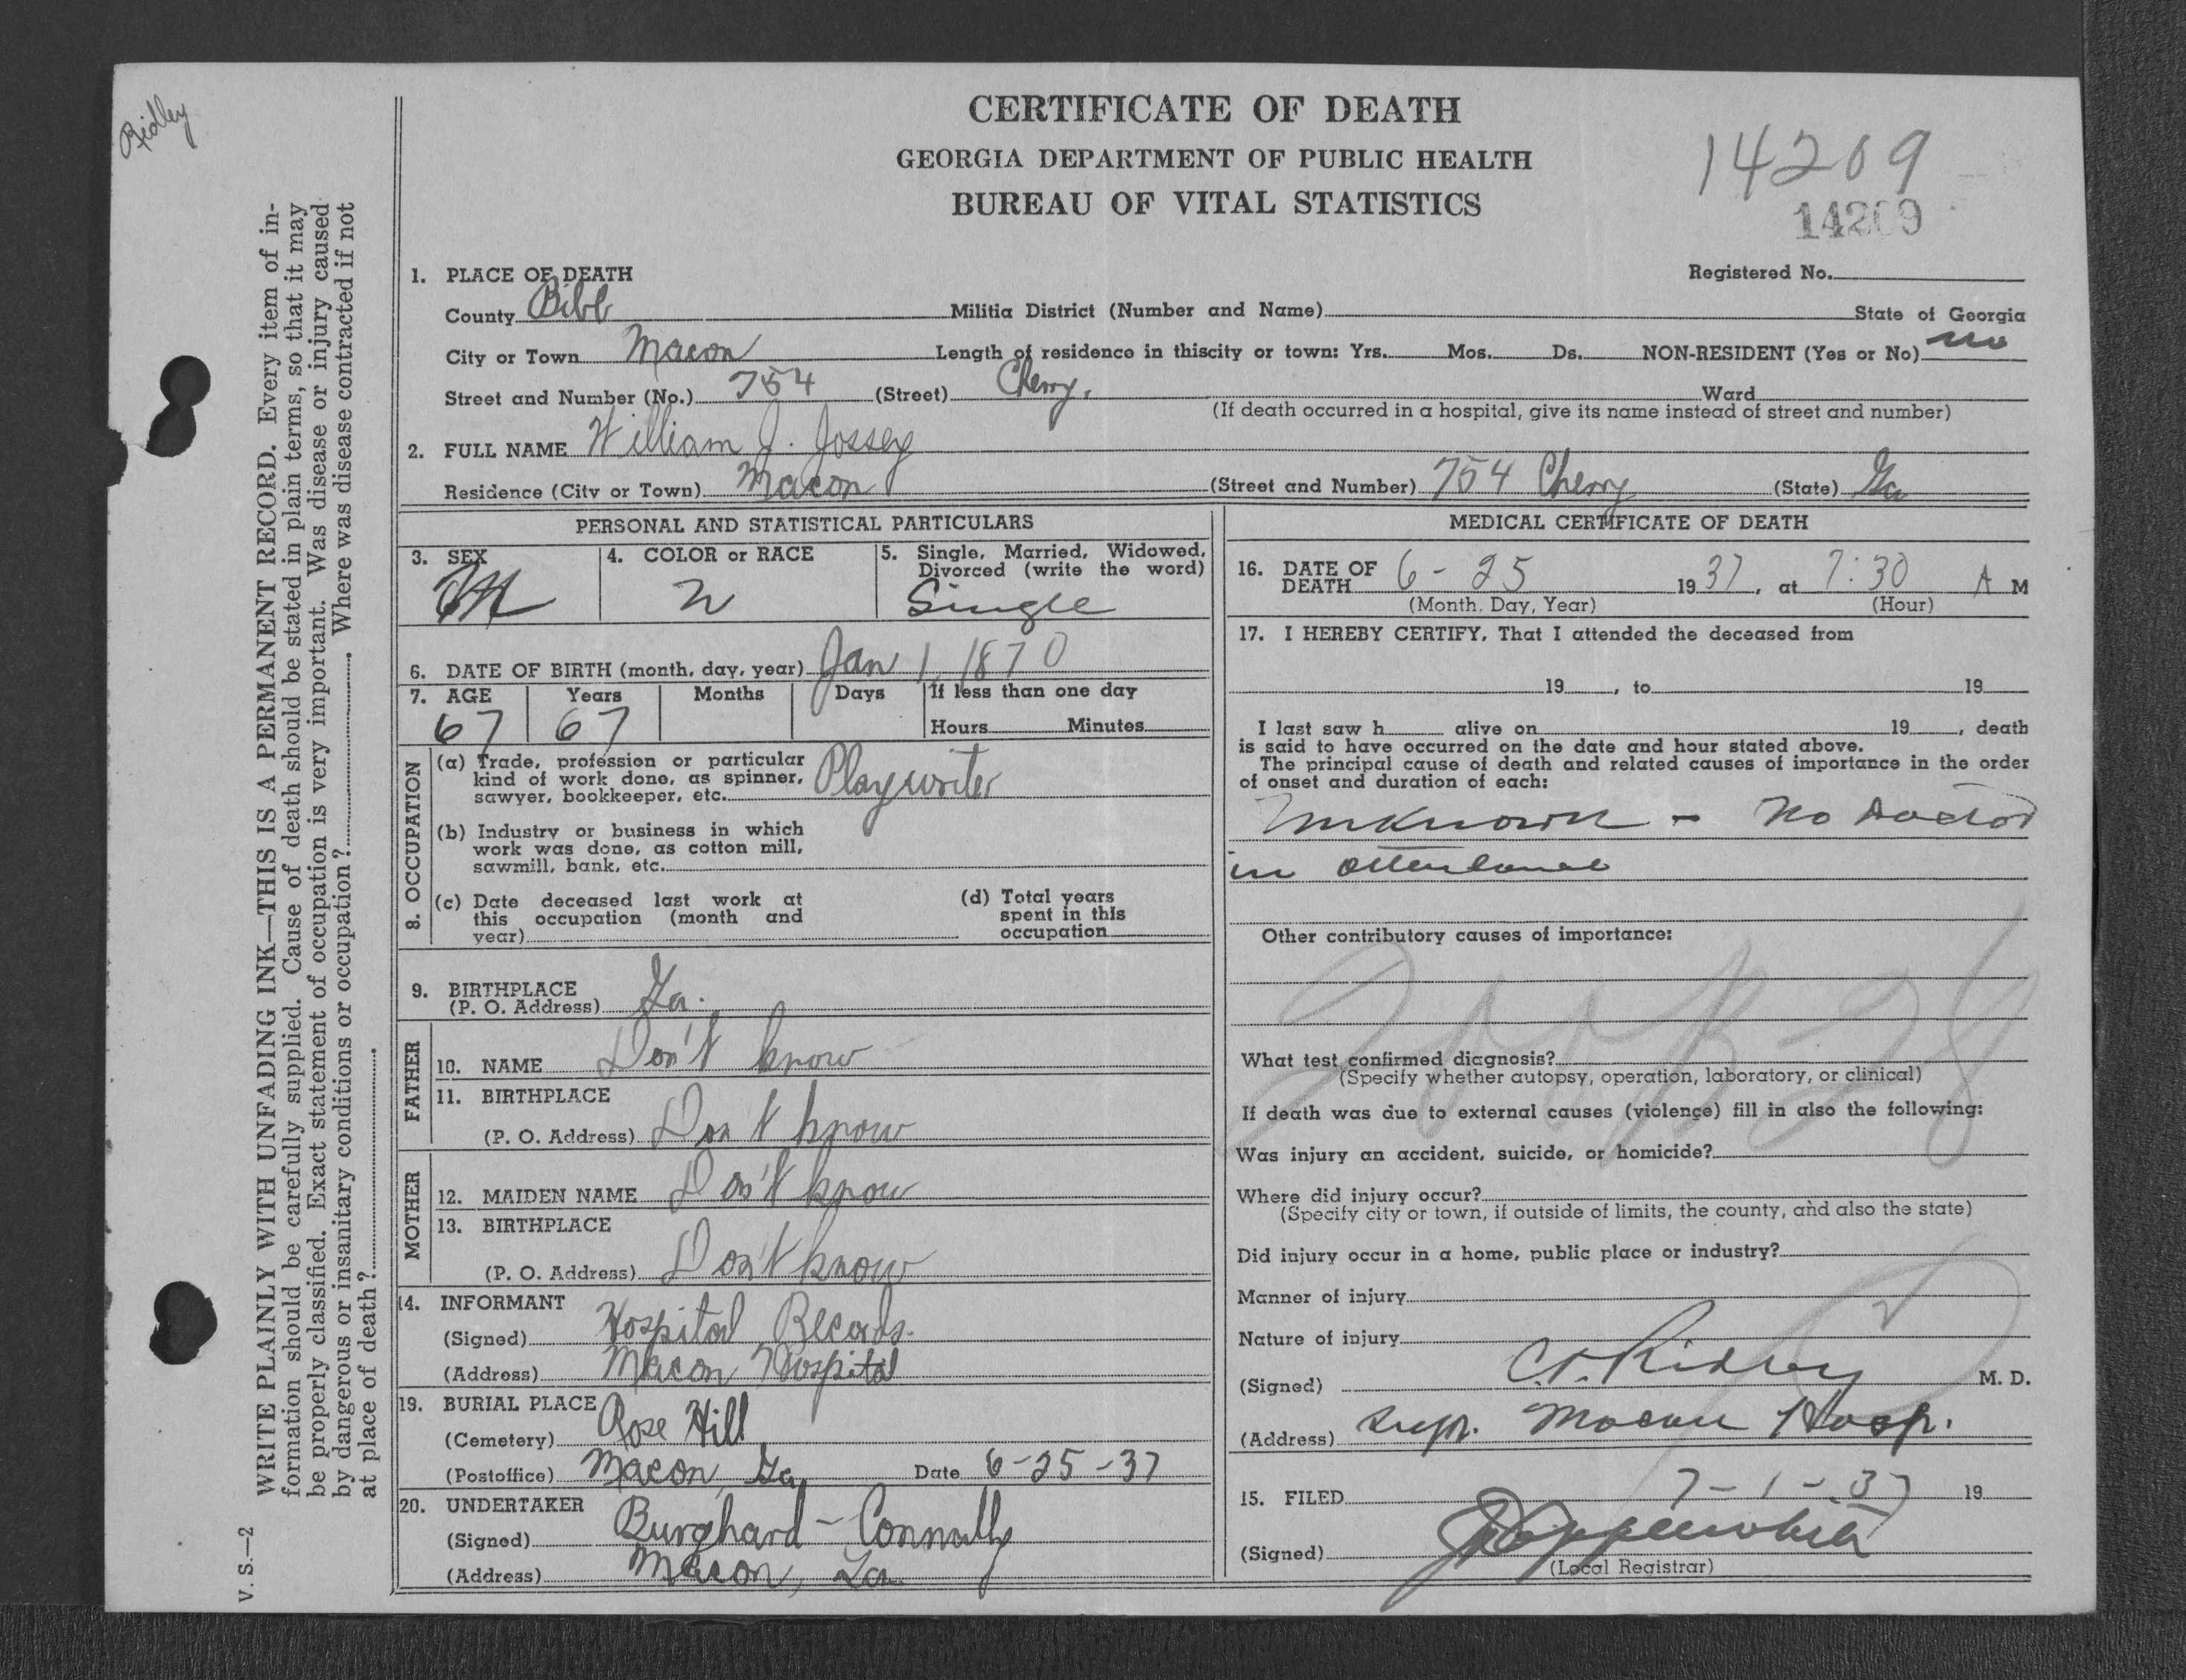 Ridley
CERTIFICATE OF DEATH
GEORGIA DEPARTMENT OF PUBLIC HEALTH
BUREAU OF VITAL STATISTICS
14209
14209
Registered No.
1. PLACE OF DEATH
County Bibb Militia District (Number and Name) State of Georgia
City or Town Macon Length of residence in thiscity or town: Yrs. Mos. Ds. NON-RESIDENT (Yes or No) no
Street and Number (No.) 754 (Street) Cherry. Ward
(If death occurred in a hospital, give its name instead of street and number)
2. FULL NAME William J. Jossey
Residence (City or Town) Macon (Street and Number) 754 Cherry (State) Ga
PERSONAL AND STATISTICAL PARTICULARS
3. SEX 4. COLOR or RACE 5. Single, Married, Widowed,
Divorced (write the word)
M W Single
6. DATE OF BIRTH (month, day, year) Jan 1, 1870
7. AGE Years Months Days If less than one day
67 67 Hours Minutes
8. OCCUPATION
(a) Trade, profession or particular
kind of work done, as spinner,
sawyer, bookkeeper, etc. Playwriter
(b) Industry or business in which
work was done, as cotton mill,
sawmill, bank, etc.
(c) Date deceased last work at
this occupation (month and
year)
(d) Total years
spent in this
occupation
9. BIRTHPLACE
(P. O. Address) Ga.
FATHER
10. NAME Don't know
11. BIRTHPLACE
(P. O. Address) Don't know
MOTHER
12. MAIDEN NAME Don't know
13. BIRTHPLACE
(P. O. Address) Don't know
14. INFORMANT
(Signed) Hospital Records.
(Address) Macon Hospital
19. BURIAL PLACE
(Cemetery) Rose Hill
(Postoffice) Macon, Ga. Date 6-25-37
20. UNDERTAKER
(Signed) Burghard - Connally
(Address) Macon, Ga.
MEDICAL CERTIFICATE OF DEATH
16. DATE OF
DEATH 6 - 25 1937, at 7:30 A M
(Month, Day, Year) (Hour)
17. I HEREBY CERTIFY, That I attended the deceased from
19 , to 19
I last saw h alive on 19 , death
is said to have occurred on the date and hour stated above.
The principal cause of death and related causes of importance in the order
of onset and duration of each:
Unknown - No Doctor
in attendance
Other contributory causes of importance:
What test confirmed diagnosis?
(Specify whether autopsy, operation, laboratory, or clinical)
If death was due to external causes (violence) fill in also the following:
Was injury an accident, suicide, or homicide?
Where did injury occur?
(Specify city or town, if outside of limits, the county, and also the state)
Did injury occur in a home, public place or industry?
Manner of injury
Nature of injury
(Signed) C. Ridley M. D.
(Address) Supr. Macon Hosp.
15. FILED 7-1-37 19
(Signed)
(Local Registrar)
WRITE PLAINLY WITH UNFADING INK—THIS IS A PERMANENT RECORD. Every item of in-
formation should be carefully supplied. Cause of death should be stated in plain terms, so that it may
be properly classified. Exact statement of occupation is very important. Was disease or injury caused
by dangerous or insanitary conditions or occupation? Where was disease contracted if not
at place of death?
V. S.—2